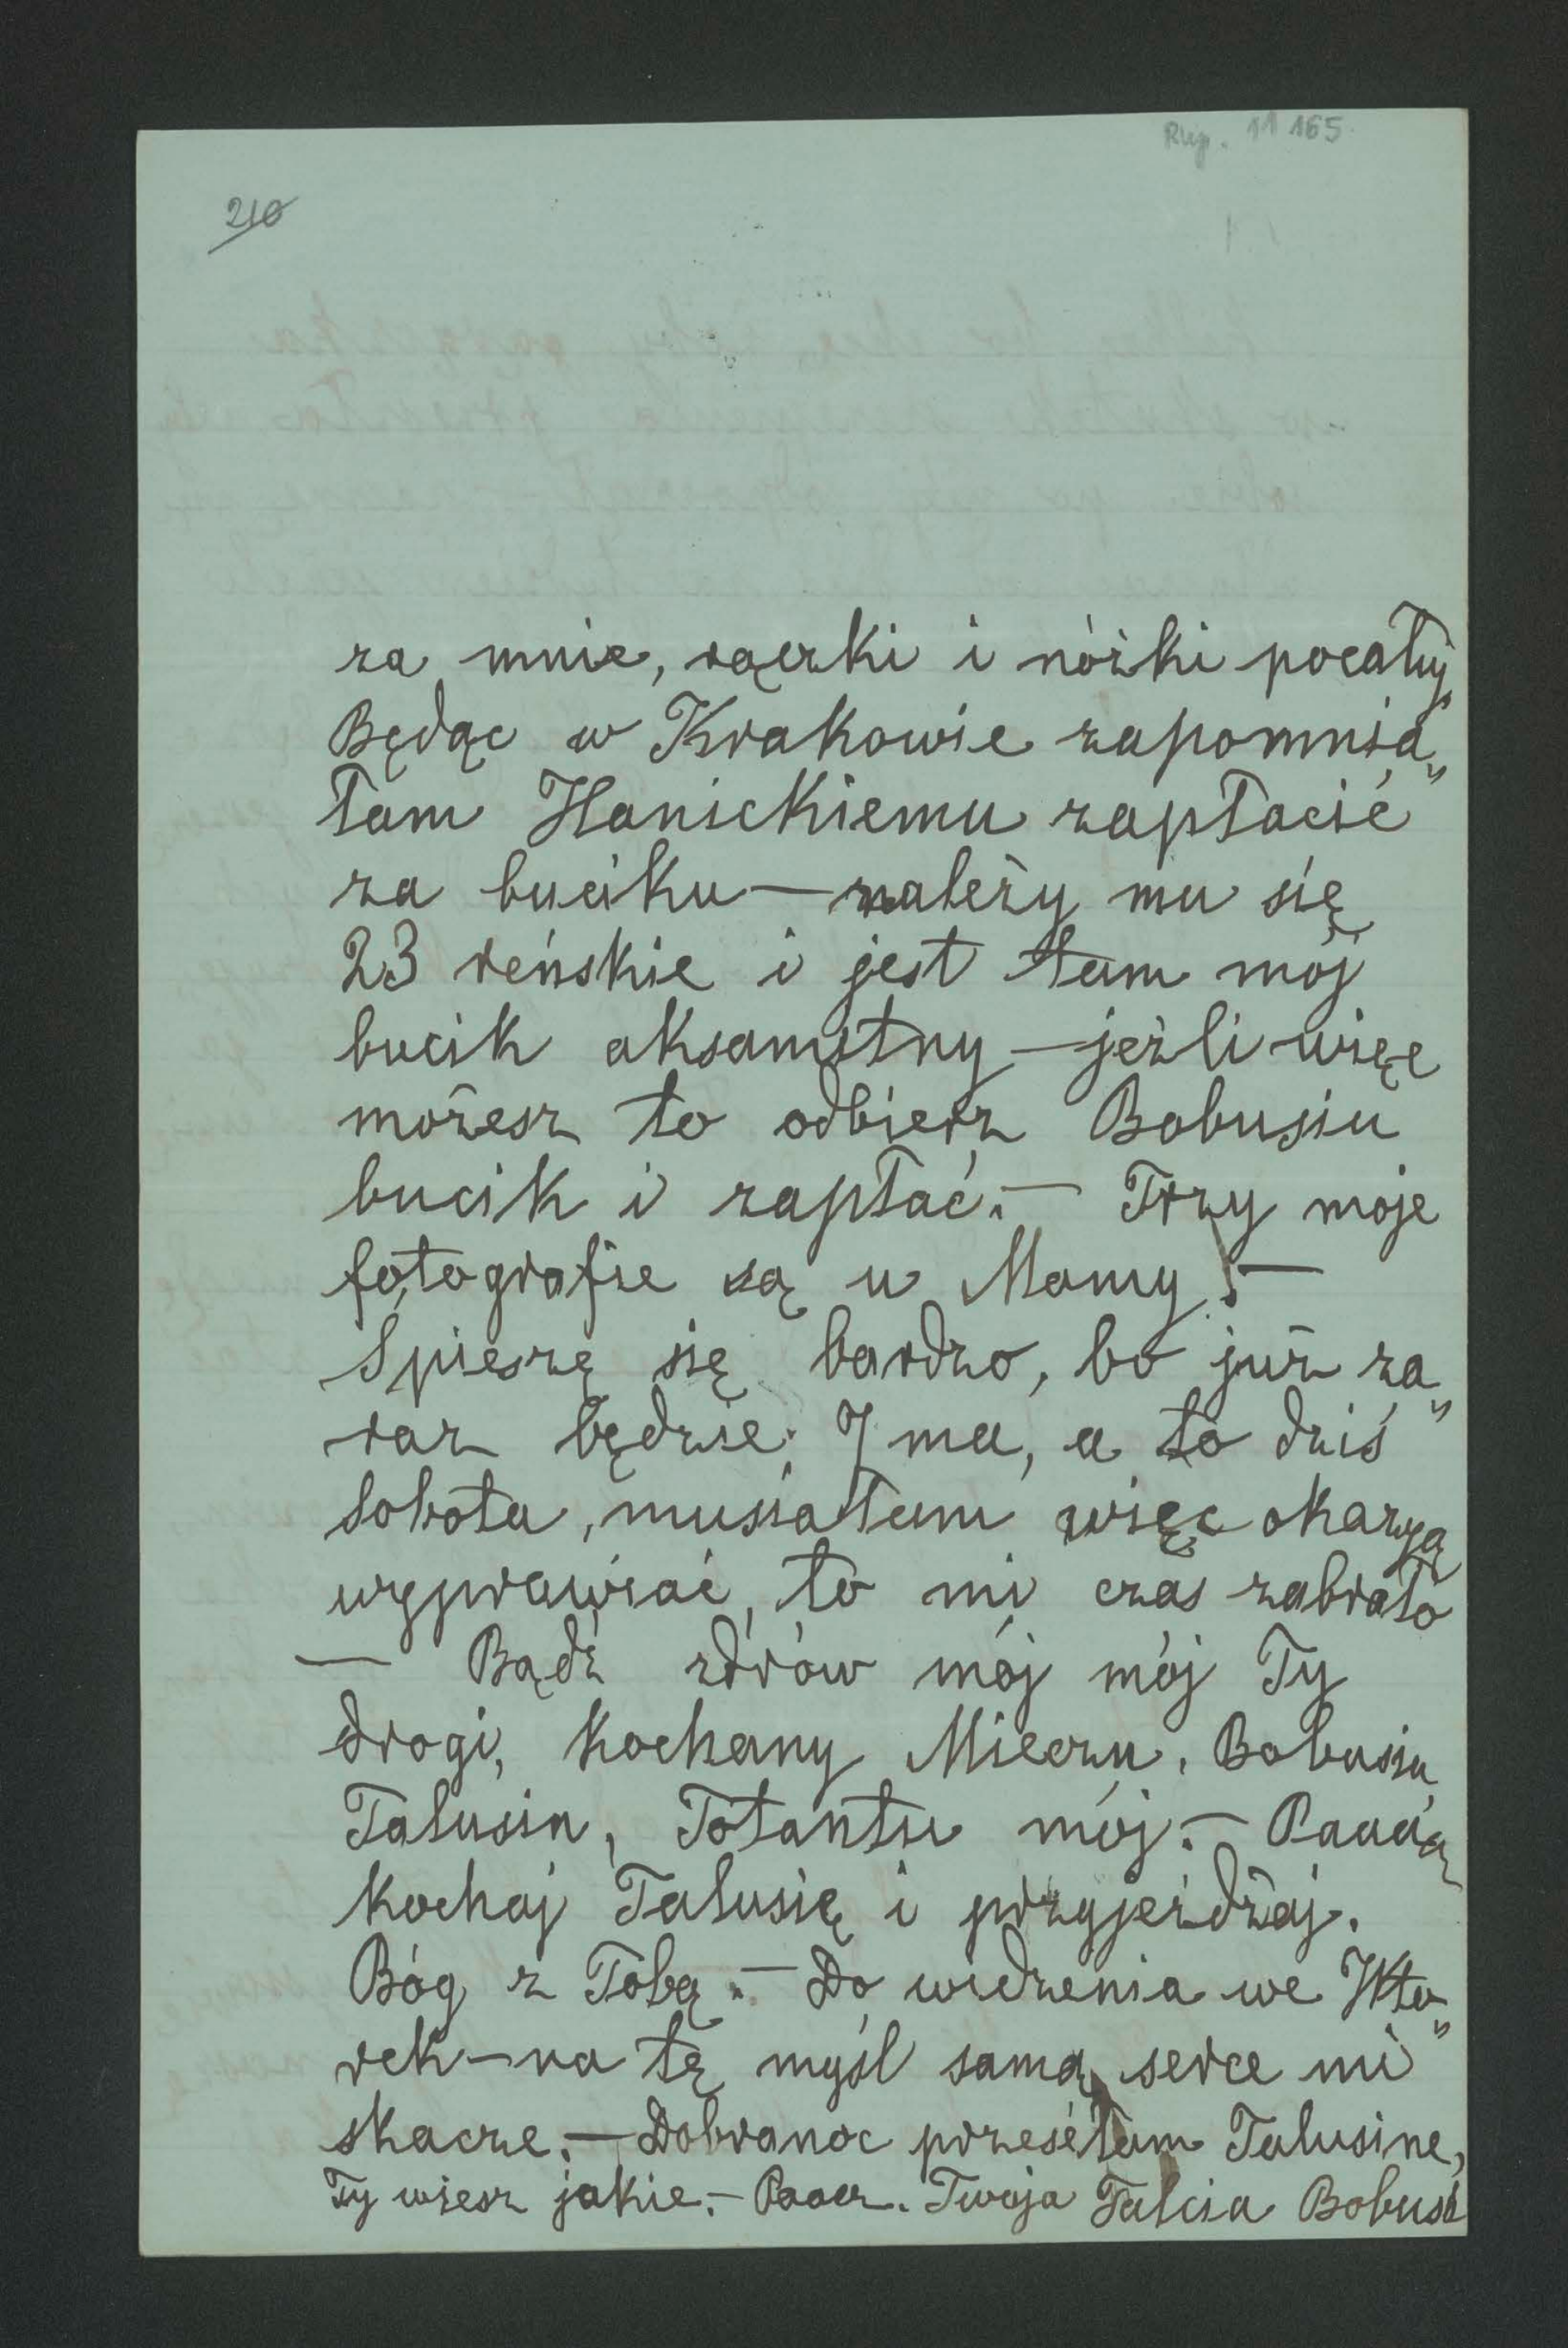 Rkp. 11 165
210
za mnie, rączki i nóżki pocałuj
Będąc w Krakowie zapomnia„
łam Hanickiemu zapłacić
za buciku — należy mu się
23 reńskie i jest tam mój
bucik aksamitny — jeźli więc
możesz to odbierz Bobusiu
bucik i zapłać. — Trzy moje
fotografie są u Mamy. —
Spieszę się bardzo, bo już za„
raz będzie 7 ma, a to dziś
sobota, musiałam więc okazyą
wyprawiać, to mi czas zabrało
— Bądź zdrów mój mój Ty
drogi, kochany Mieczu, Bobusiu
Talusiu, Totantsu mój. — Paaaą
kochaj Talusię i przyjeżdżaj.
Bóg z Tobą. — Do widzenia we Wto„
rek — na tę myśl samą serce mi
skacze. — Dobranoc przesełam Talusine,
Ty wiesz jakie. — Paaa. Twoja Talcia Bobuś